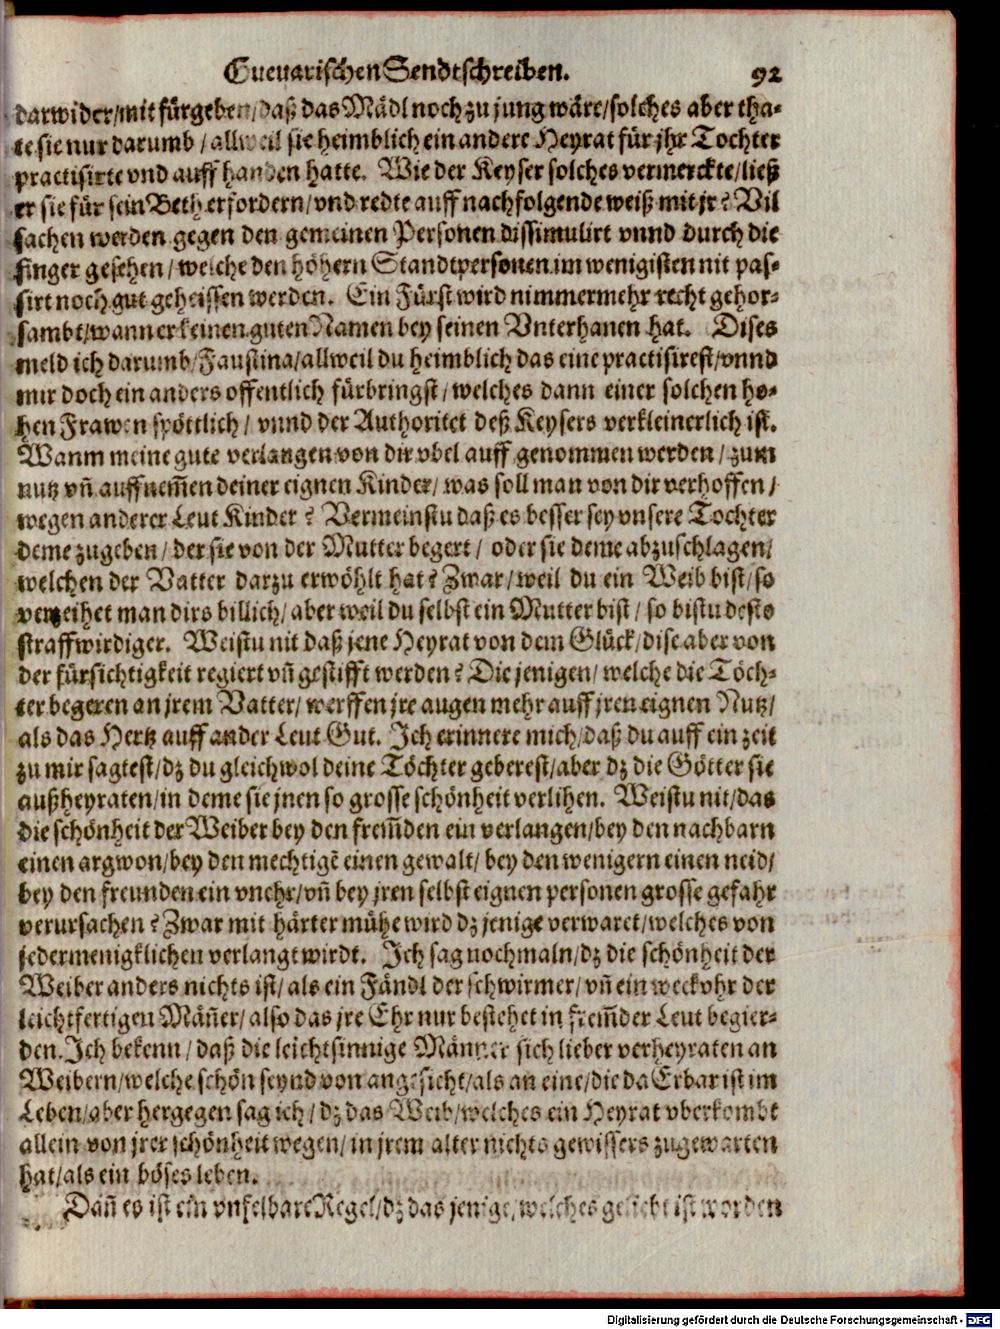 Guevarischen Sendtschreiben. 92
darwider/mit fürgeben/daß das Mädl noch zu jung wäre/solches aber tha-
te sie nur darumb/allweil sie heimblich ein andere Heyrat für jhr Tochter
practisirte vnd auff handen hatte. Wie der Keyser solches vermerckte/ließ
er sie für sein Beth erfordern/vnd redte auff nachfolgende weiß mit jr? Vil
sachen werden gegen den gemeinen Personen dissimulirt vnnd durch die
finger gesehen/welche den höhern Standtpersonen im wenigisten nit pas-
sirt noch gut geheissen werden. Ein Fürst wird nimmermehr recht gehor-
sambt/wann er keinen guten Namen bey seinen Vnterhanen hat. Dises
meld ich darumb/Faustina/allweil du heimblich das eine practisirest/vnnd
mir doch ein anders offentlich fürbringst/welches dann einer solchen ho-
hen Frawen spöttlich/vnnd der Authoritet deß Keysers verkleinerlich ist.
Wann meine gute verlangen von dir vbel auff genommen werden/zum
nutz vñ auffnem̃en deiner eignen Kinder/was soll man von dir verhoffen/
wegen anderer Leut Kinder? Vermeinstu daß es besser sey vnsere Tochter
deme zugeben/der sie von der Mutter begert/oder sie deme abzuschlagen/
welchen der Vatter darzu erwöhlt hat? Zwar/weil du ein Weib bist/so
verzeihet man dirs billich/aber weil du selbst ein Mutter bist/so bistu desto
straffwirdiger. Weistu nit daß jene Heyrat von dem Glück/dise aber von
der fürsichtigkeit regiert vñ gestifft werden? Die jenigen/welche die Töch-
ter begeren an jrem Vatter/werffen jre augen mehr auff jren eignen Nutz/
als das Hertz auff ander Leut Gut. Ich erinnere mich/daß du auff ein zeit
zu mir sagtest/dz du gleichwol deine Töchter geberest/aber dz die Götter sie
außheyraten/in deme sie jnen so grosse schönheit verlihen. Weistu nit/das
die schönheit der Weiber bey den frem̃den ein verlangen/bey den nachbarn
einen argwon/bey den mechtigẽ einen gewalt/bey den wenigern einen neid/
bey den freunden ein vnehr/vñ bey jren selbst eignen personen grosse gefahr
verursachen? Zwar mit härter mühe wird dz jenige verwaret/welches von
jedermenigklichen verlangt wirdt. Ich sag nochmaln/dz die schönheit der
Weiber anders nichts ist/als ein Fändl der schwirmer/vñ ein weckvhr der
leichtfertigen Mäñer/also das jre Ehr nur bestehet in frem̃der Leut begier-
den. Ich bekenn/daß die leichtsinnige Männer sich lieber verheyraten an
Weibern/welche schön seynd von angesicht/als an eine/die da Erbar ist im
Leben/aber hergegen sag ich/dz das Weib/welches ein Heyrat vberkombt
allein von jrer schönheit wegen/in jrem alter nichts gewissers zugewarten
hat/als ein böses leben.
Dañ es ist ein vnfelbare Regel/dz das jenige/welches geliebt ist worden
Digitalisierung gefördert durch die Deutsche Forschungsgemeinschaft - DFG